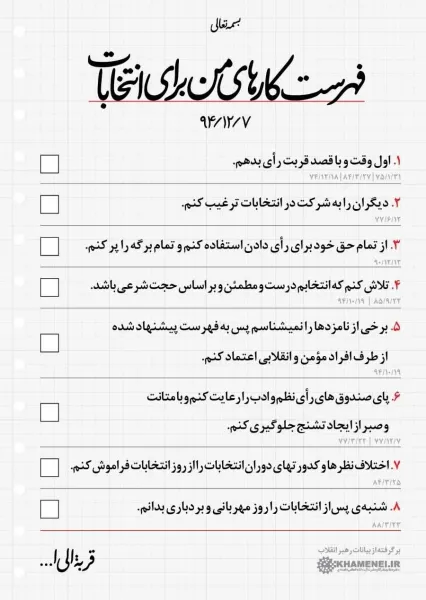 بسمه تعالی
فهرست کارهای من برای انتخابات
۹۴/۱۲/۷
۱. اول وقت و با قصد قربت رأی بدهم.
۷۴/۱۲/۱۸ | ۸۴/۳/۲۷ | ۷۵/۱/۳۱
۲. دیگران را به شرکت در انتخابات ترغیب کنم.
۷۷/۶/۱۲
۳. از تمام حق خود برای رأی دادن استفاده کنم و تمام برگه را پر کنم.
۹۰/۱۲/۱۲
۴. تلاش کنم که انتخابم درست و مطمئن و بر اساس حجت شرعی باشد.
۹۴/۱۰/۱۹ | ۸۵/۹/۲۴
۵. برخی از نامزدها را نمیشناسم پس به فهرست پیشنهاد شده
از طرف افراد مؤمن و انقلابی اعتماد کنم.
۹۴/۱۰/۱۹
۶. پای صندوق های رأی نظم و ادب را رعایت کنم و با متانت
و صبر از ایجاد تشنج جلوگیری کنم.
۷۷/۳/۲۴ | ۷۷/۱۲/۷
۷. اختلاف نظرها و کدورتهای دوران انتخابات را از روز انتخابات فراموش کنم.
۸۴/۳/۲۵
۸. شنبه‌ی پس از انتخابات را روز مهربانی و بردباری بدانم.
۸۸/۳/۲۳
قربة الی ا...
برگرفته از بیانات رهبر انقلاب
KHAMENEI.IR